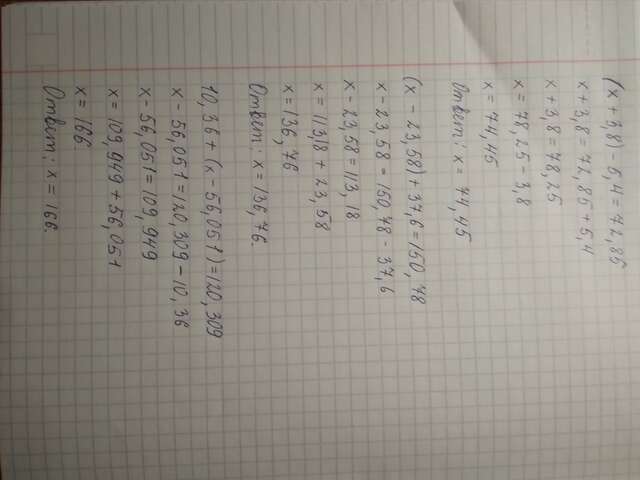 (x + 3,8) - 5,4 = 72,85
x + 3,8 = 72,85 + 5,4
x + 3,8 = 78,25
x = 78,25 - 3,8
x = 74,45
Ответ: x = 74,45
(x - 23,58) + 37,6 = 150,78
x - 23,58 = 150,78 - 37,6
x - 23,58 = 113,18
x = 113,18 + 23,58
x = 136,76
Ответ: x = 136,76.
10,36 + (x - 56,051) = 120,309
x - 56,051 = 120,309 - 10,36
x - 56,051 = 109,949
x = 109,949 + 56,051
x = 166
Ответ: x = 166.